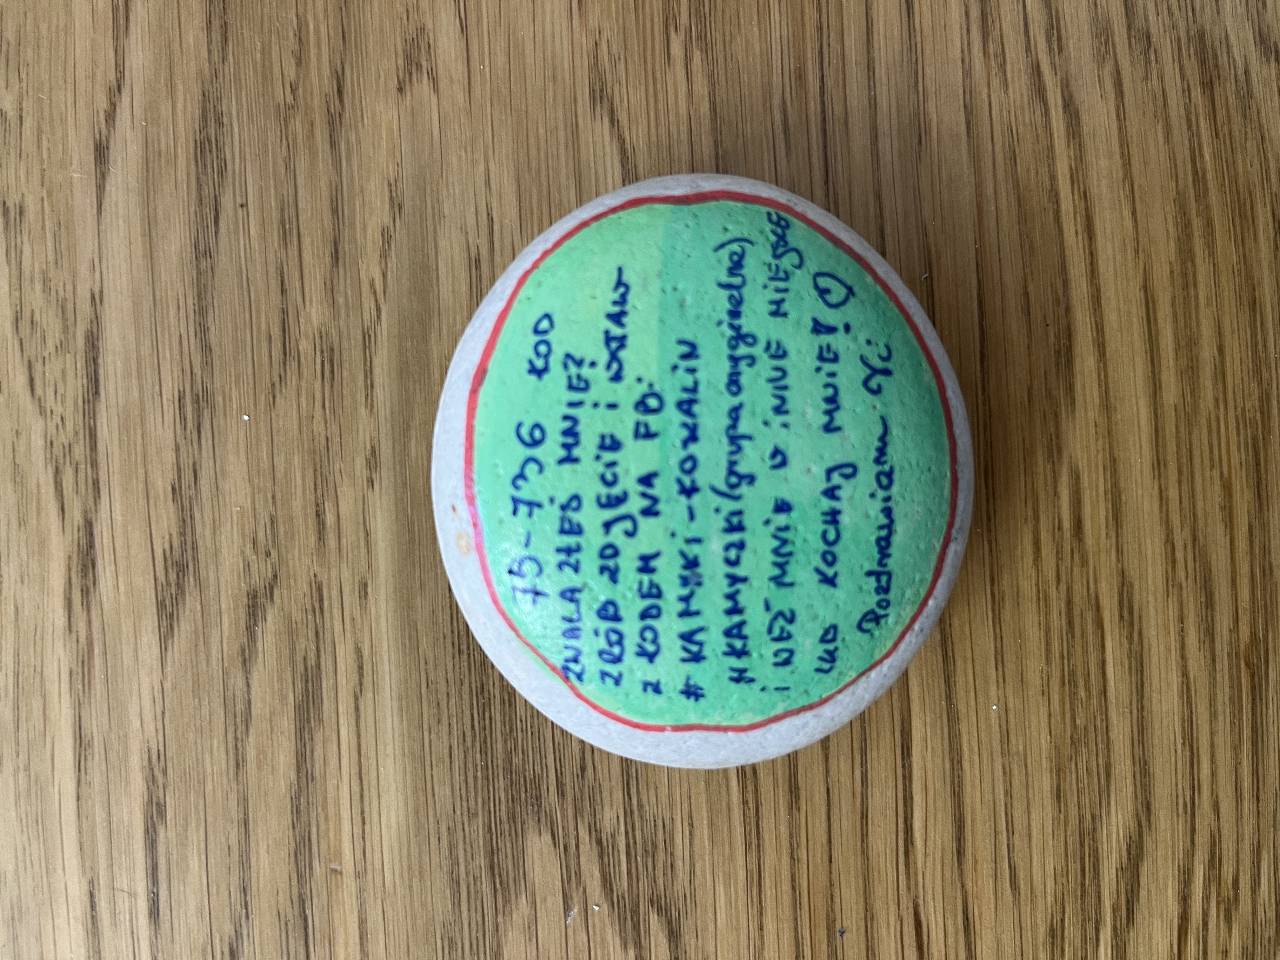 75-736 KOD
ZNALAZŁEŚ MNIE?
ZRÓB ZDJĘCIE I WSTAW
Z KODEM NA FB:
# KAMYKI-KOSZALIN
# KAMYCZKI (grupa oryginalna)
i WEŹ MNIE W INNE MIEJSCE
LUB KOCHAJ MNIE! ♡
Pozdrawiam